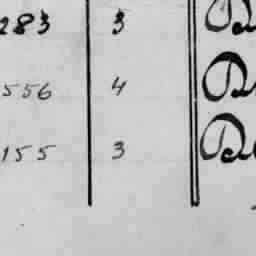 283 3
556 4
155 3